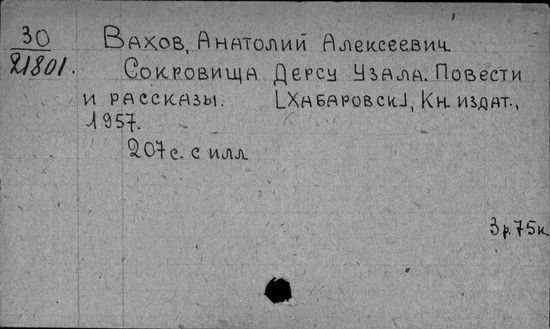 30
21801.
Вахов, Анатолий Алексеевич
Сокровища Дерсу Узала. Повести
и рассказы. [Хабаровск], Кн. издат.,
1957.
207 с. с илл
3 р. 75 к.